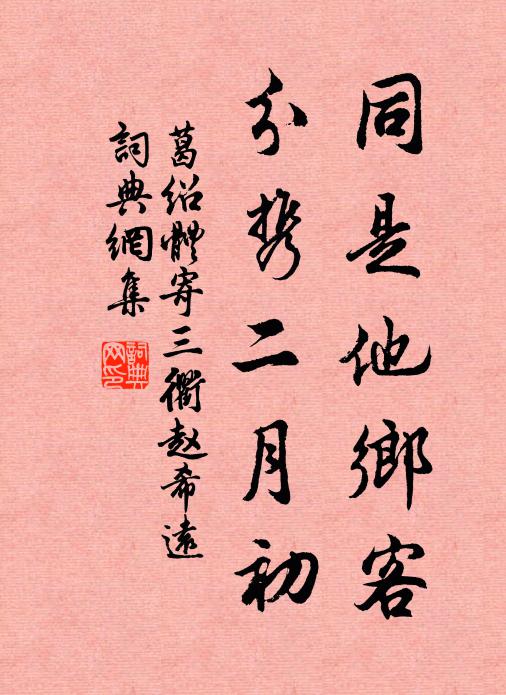 同是他鄉客
分携二月初
葛紹體寄三衢赵希遠
詞典網集
詞典网印